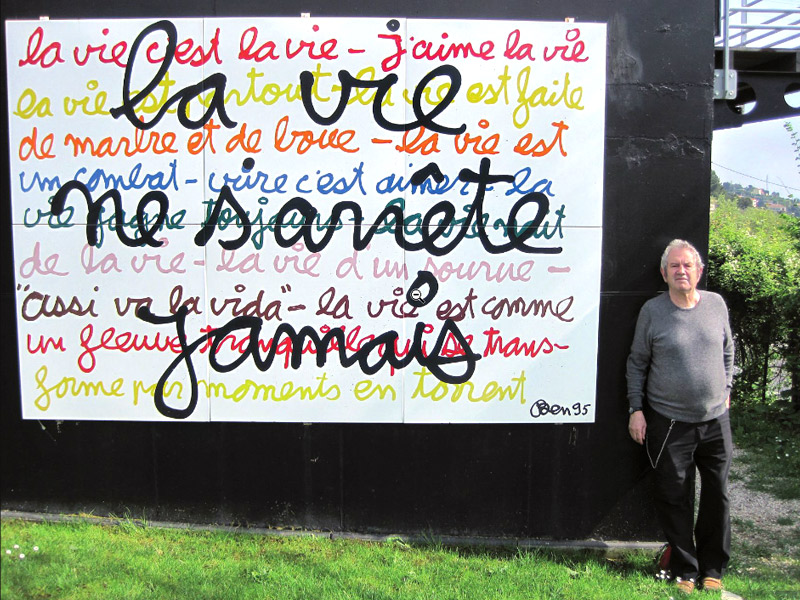 la vie c'est la vie - j'aime la vie
la vie est partout - la vie est faite
de marbre et de boue - la vie est
un combat - vivre c'est aimer - la
vie gagne toujours - la vie nait
de la vie - la vie d'un sourire -
"assi va la vida" - la vie est comme
un fleuve tranquille qui se trans-
forme par moments en torrent
la vie
ne s'arrête
jamais
Ben 95